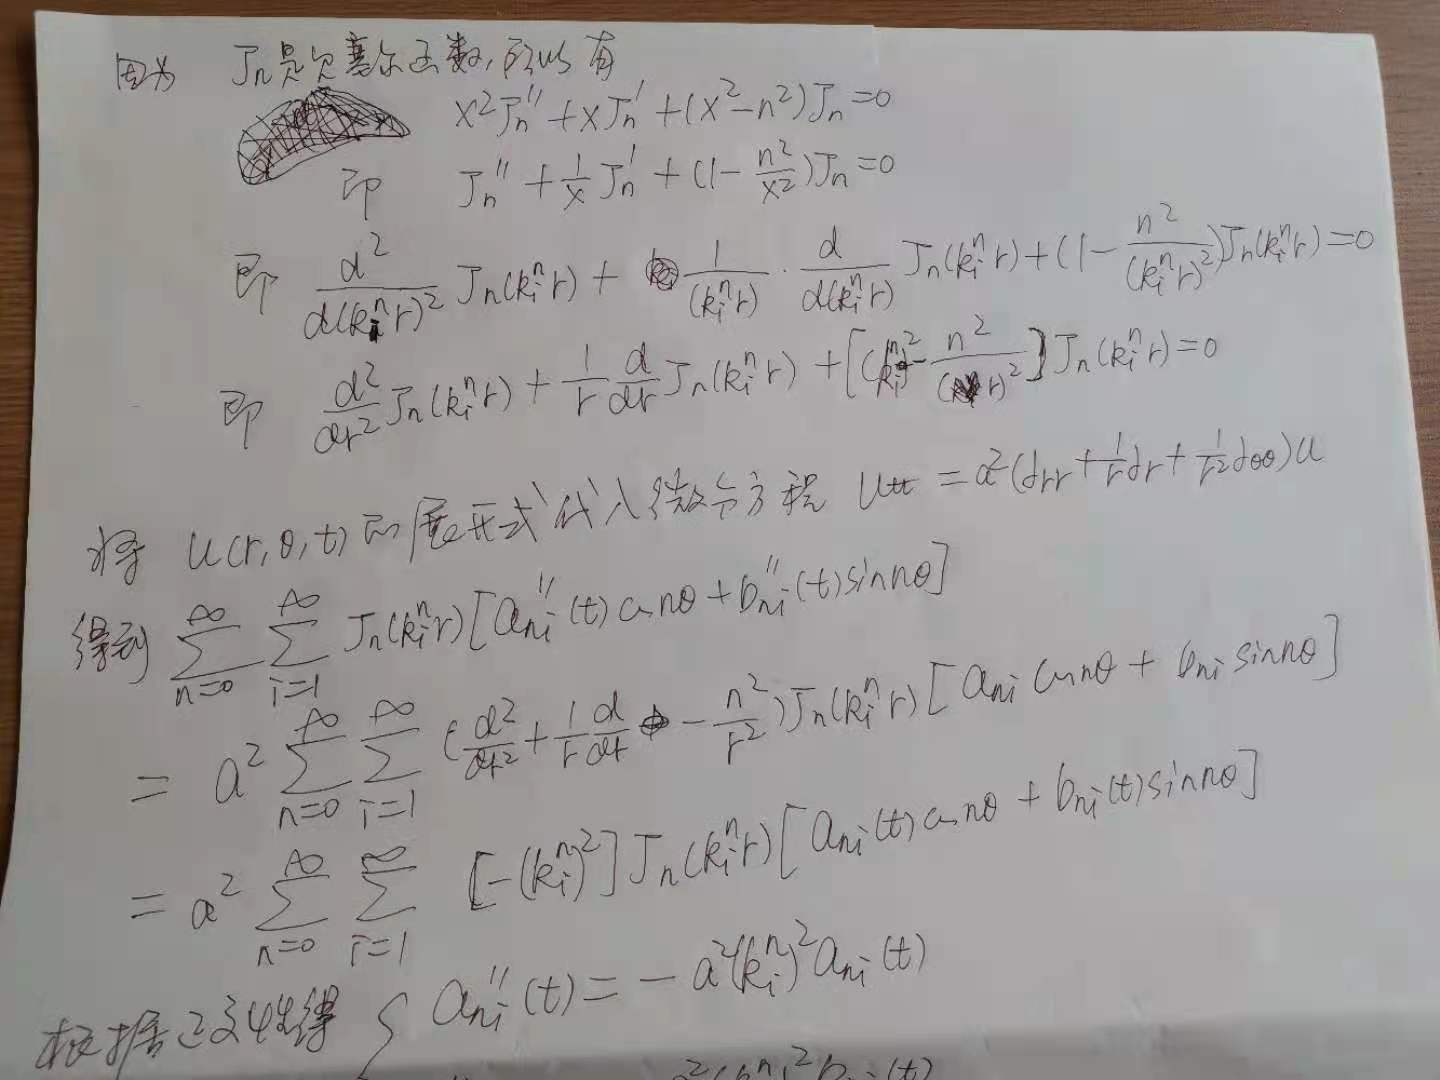 因为 Jn是贝塞尔函数,所以有
x²Jn'' + xJn' + (x²-n²)Jn = 0
即 Jn'' + 1/x Jn' + (1 - n²/x²)Jn = 0
即 d²/d(kᵢⁿr)² Jn(kᵢⁿr) + 1/(kᵢⁿr) · d/d(kᵢⁿr) Jn(kᵢⁿr) + (1 - n²/(kᵢⁿr)²)Jn(kᵢⁿr) = 0
即 d²/dr² Jn(kᵢⁿr) + 1/r d/dr Jn(kᵢⁿr) + [(kᵢⁿ)² - n²/(r)²] Jn(kᵢⁿr) = 0
将 u(r,θ,t) 的展开式代入微分方程 utt = a²(∂rr + 1/r ∂r + 1/r² ∂θθ)u
得到 ∑n=0+∞ ∑i=1+∞ Jn(kᵢⁿr)[ani''(t)cosnθ + bni''(t)sinnθ]
= a² ∑n=0+∞ ∑i=1+∞ (d²/dr² + 1/r d/dr - n²/r²)Jn(kᵢⁿr)[ani cosnθ + bni sinnθ]
= a² ∑n=0+∞ ∑i=1∞ [-(kᵢⁿ)²]Jn(kᵢⁿr)[ani(t)cosnθ + bni(t)sinnθ]
根据正交性得 { ani''(t) = -a²(kᵢⁿ)²ani(t)